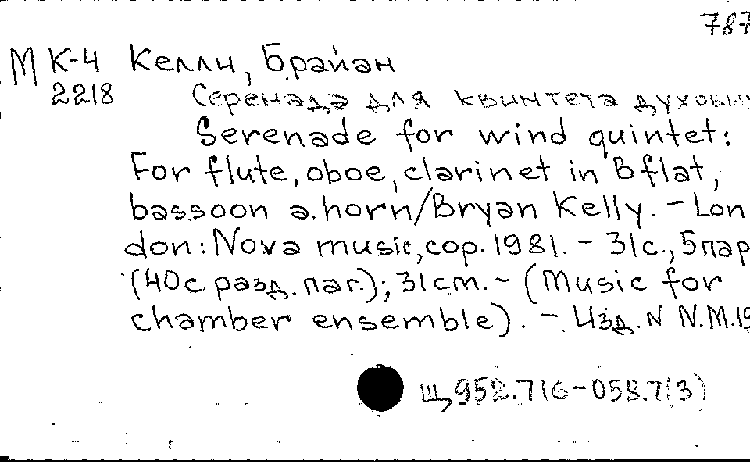 787
М К-4 Келли, Брайан
2218 Серенада для квинтета духовых
Serenade for wind quintet:
For flute, oboe, clarinet in B flat,
bassoon a. horn/Bryan Kelly. – Lon
don: Nova music, cop. 1981. – 31с., 5 пар
(40с разд. паг.); 31cm. – (Music for
chamber ensemble). – Изд. N N.M.
Щ952.7(6-058.7(3)